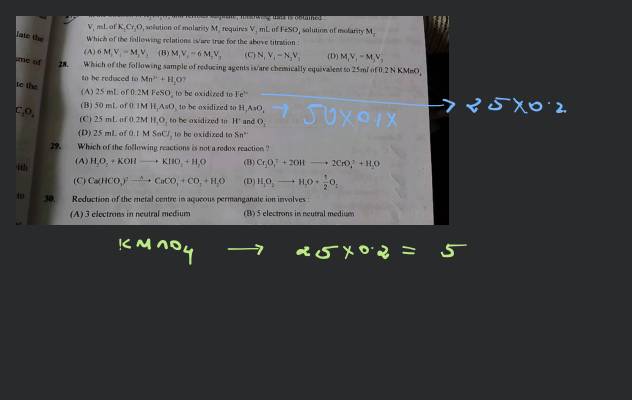 V₁ mL of K₂Cr₂O₇ solution of molarity M₁ requires V₂ mL of FeSO₄ solution of molarity M₂
Which of the following relations is/are true for the above titration :
(A) 6 M₁V₁ = M₂V₂ (B) M₁V₁ = 6 M₂V₂ (C) N₁V₁ = N₂V₂ (D) M₁V₁ = M₂V₂
late the
28. Which of the following sample of reducing agents is/are chemically equivalent to 25ml of 0.2 N KMnO₄
me of
to be reduced to Mn²⁺ + H₂O?
te the
(A) 25 mL of 0.2M FeSO₄ to be oxidized to Fe³⁺ → 25×0.2
(B) 50 mL of 0.1M H₃AsO₃ to be oxidized to H₃AsO₄ → 50×0.1×
(C) 25 mL of 0.2M H₂O₂ to be oxidized to H⁺ and O₂
C₂O₄
(D) 25 mL of 0.1 M SnCl₂ to be oxidized to Sn⁴⁺
29. Which of the following reactions is not a redox reaction ?
(A) H₂O₂ + KOH → KHO₂ + H₂O (B) Cr₂O₇²⁻ + 2OH⁻ → 2CrO₄²⁻ + H₂O
ith
(C) Ca(HCO₃)₂ → CaCO₃ + CO₂ + H₂O (D) H₂O₂ → H₂O + 1/2 O₂
to
30. Reduction of the metal centre in aqueous permanganate ion involves :
(A) 3 electrons in neutral medium (B) 5 electrons in neutral medium
KMnO4 → 25×0.2 = 5